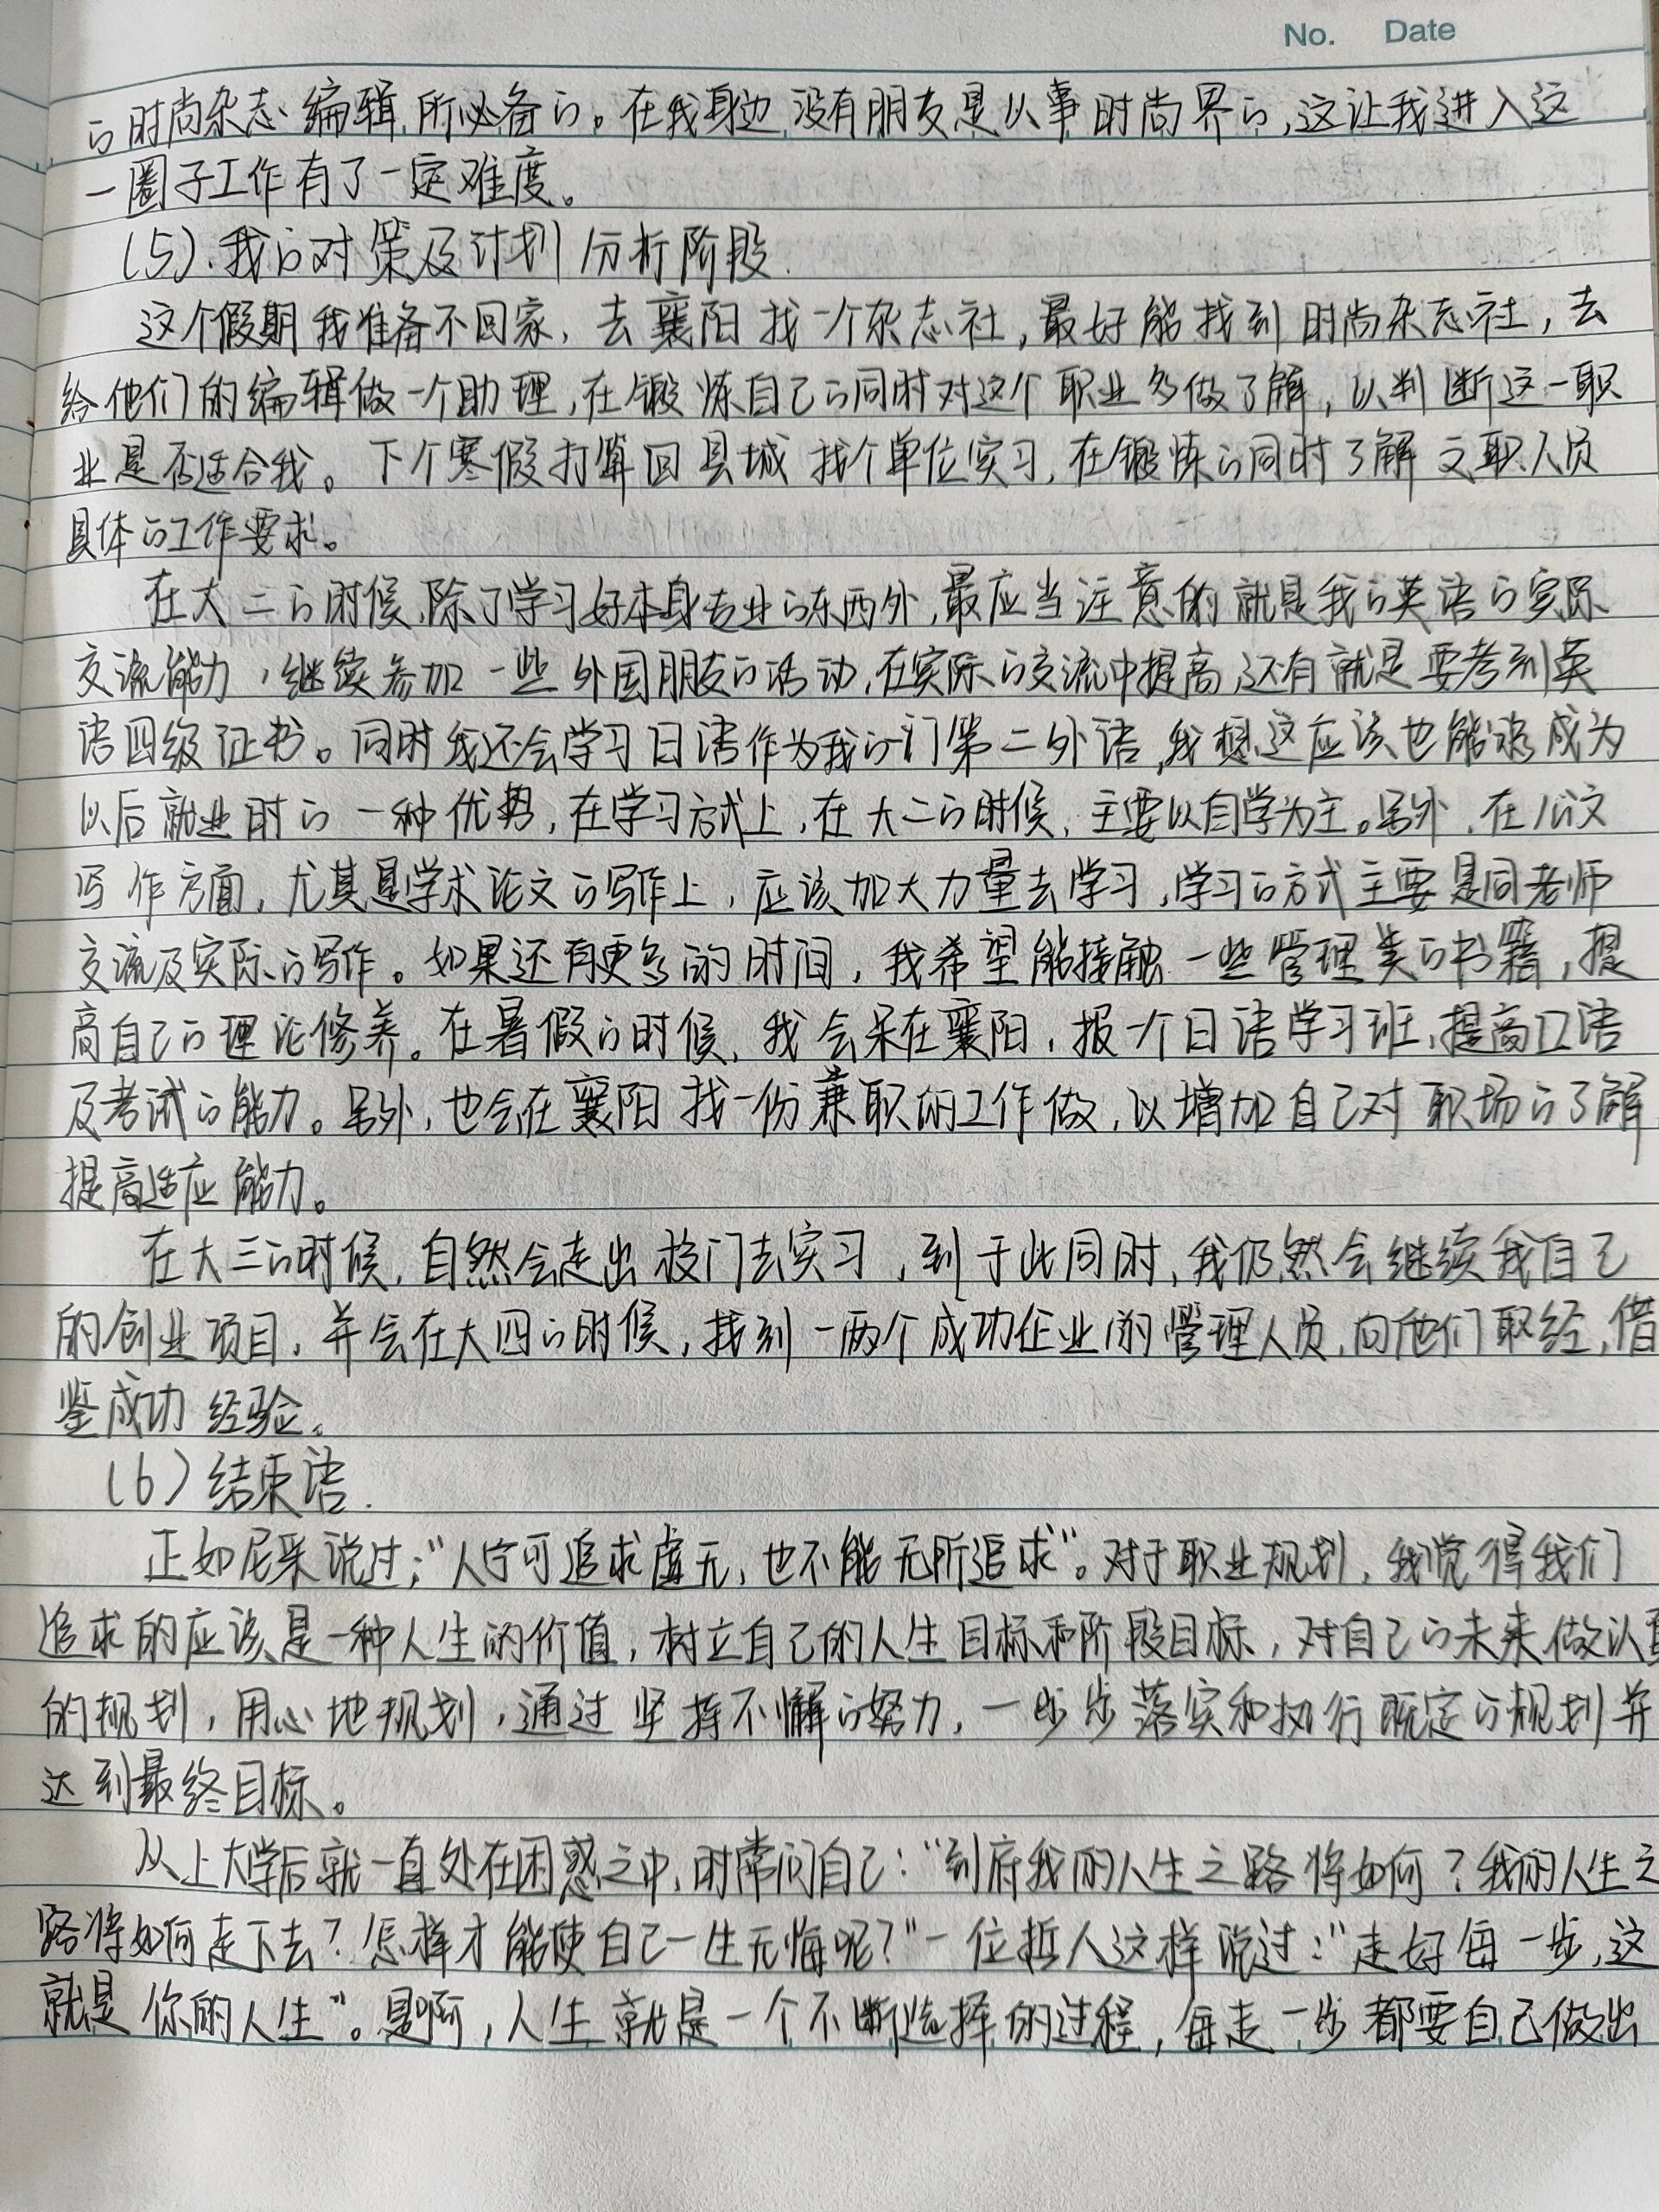 No. Date
的时尚杂志编辑所必备的。在我身边没有朋友是从事时尚界的,这让我进入这
一圈子工作有了一定难度。
(5).我的对策及计划分析阶段.
这个假期我准备不回家,去襄阳找一个杂志社,最好能找到时尚杂志社,去
给他们的编辑做一个助理,在锻炼自己的同时对这个职业多做了解,以判断这一职
业是否适合我。下个寒假打算回县城找个单位实习,在锻炼的同时了解文职人员
具体的工作要求。
在大二的时候,除了学习好本身专业的东西外,最应当注意的就是我的英语的实际
交流能力,继续参加一些外国朋友的活动,在实际的交流中提高,还有就是要考到英
语四级证书。同时我还会学习日语作为我的一门第二外语,我想这应该也能够成为
以后就业时的一种优势,在学习方式上,在大二的时候,主要以自学为主。另外,在公文
写作方面,尤其是学术论文的写作上,应该加大力量去学习,学习的方式主要是同老师
交流及实际的写作。如果还有更多的时间,我希望能接触一些管理类的书籍,提
高自己的理论修养。在暑假的时候,我会呆在襄阳,报一个日语学习班,提高口语
及考试的能力。另外,也会在襄阳找一份兼职的工作做,以增加自己对职场的了解
提高适应能力。
在大三的时候,自然会走出校门去实习,到于此同时,我仍然会继续我自己
的创业项目,并会在大四的时候,找到一两个成功企业的管理人员,向他们取经,借
鉴成功经验。
(6)结束语.
正如尼采说过:“人宁可追求虚无,也不能无所追求”。对于职业规划,我觉得我们
追求的应该是一种人生的价值,树立自己的人生目标和阶段目标,对自己的未来做认真
的规划,用心地规划,通过坚持不懈的努力,一步步落实和执行既定的规划并
达到最终目标。
从上大学后就一直处在困惑之中,时常问自己:“到府我的人生之路将如何?我的人生之
路将如何走下去?怎样才能使自己一生无悔呢?”一位哲人这样说过:“走好每一步,这
就是你的人生”。是啊,人生就是一个不断选择的过程,每走一步都要自己做出